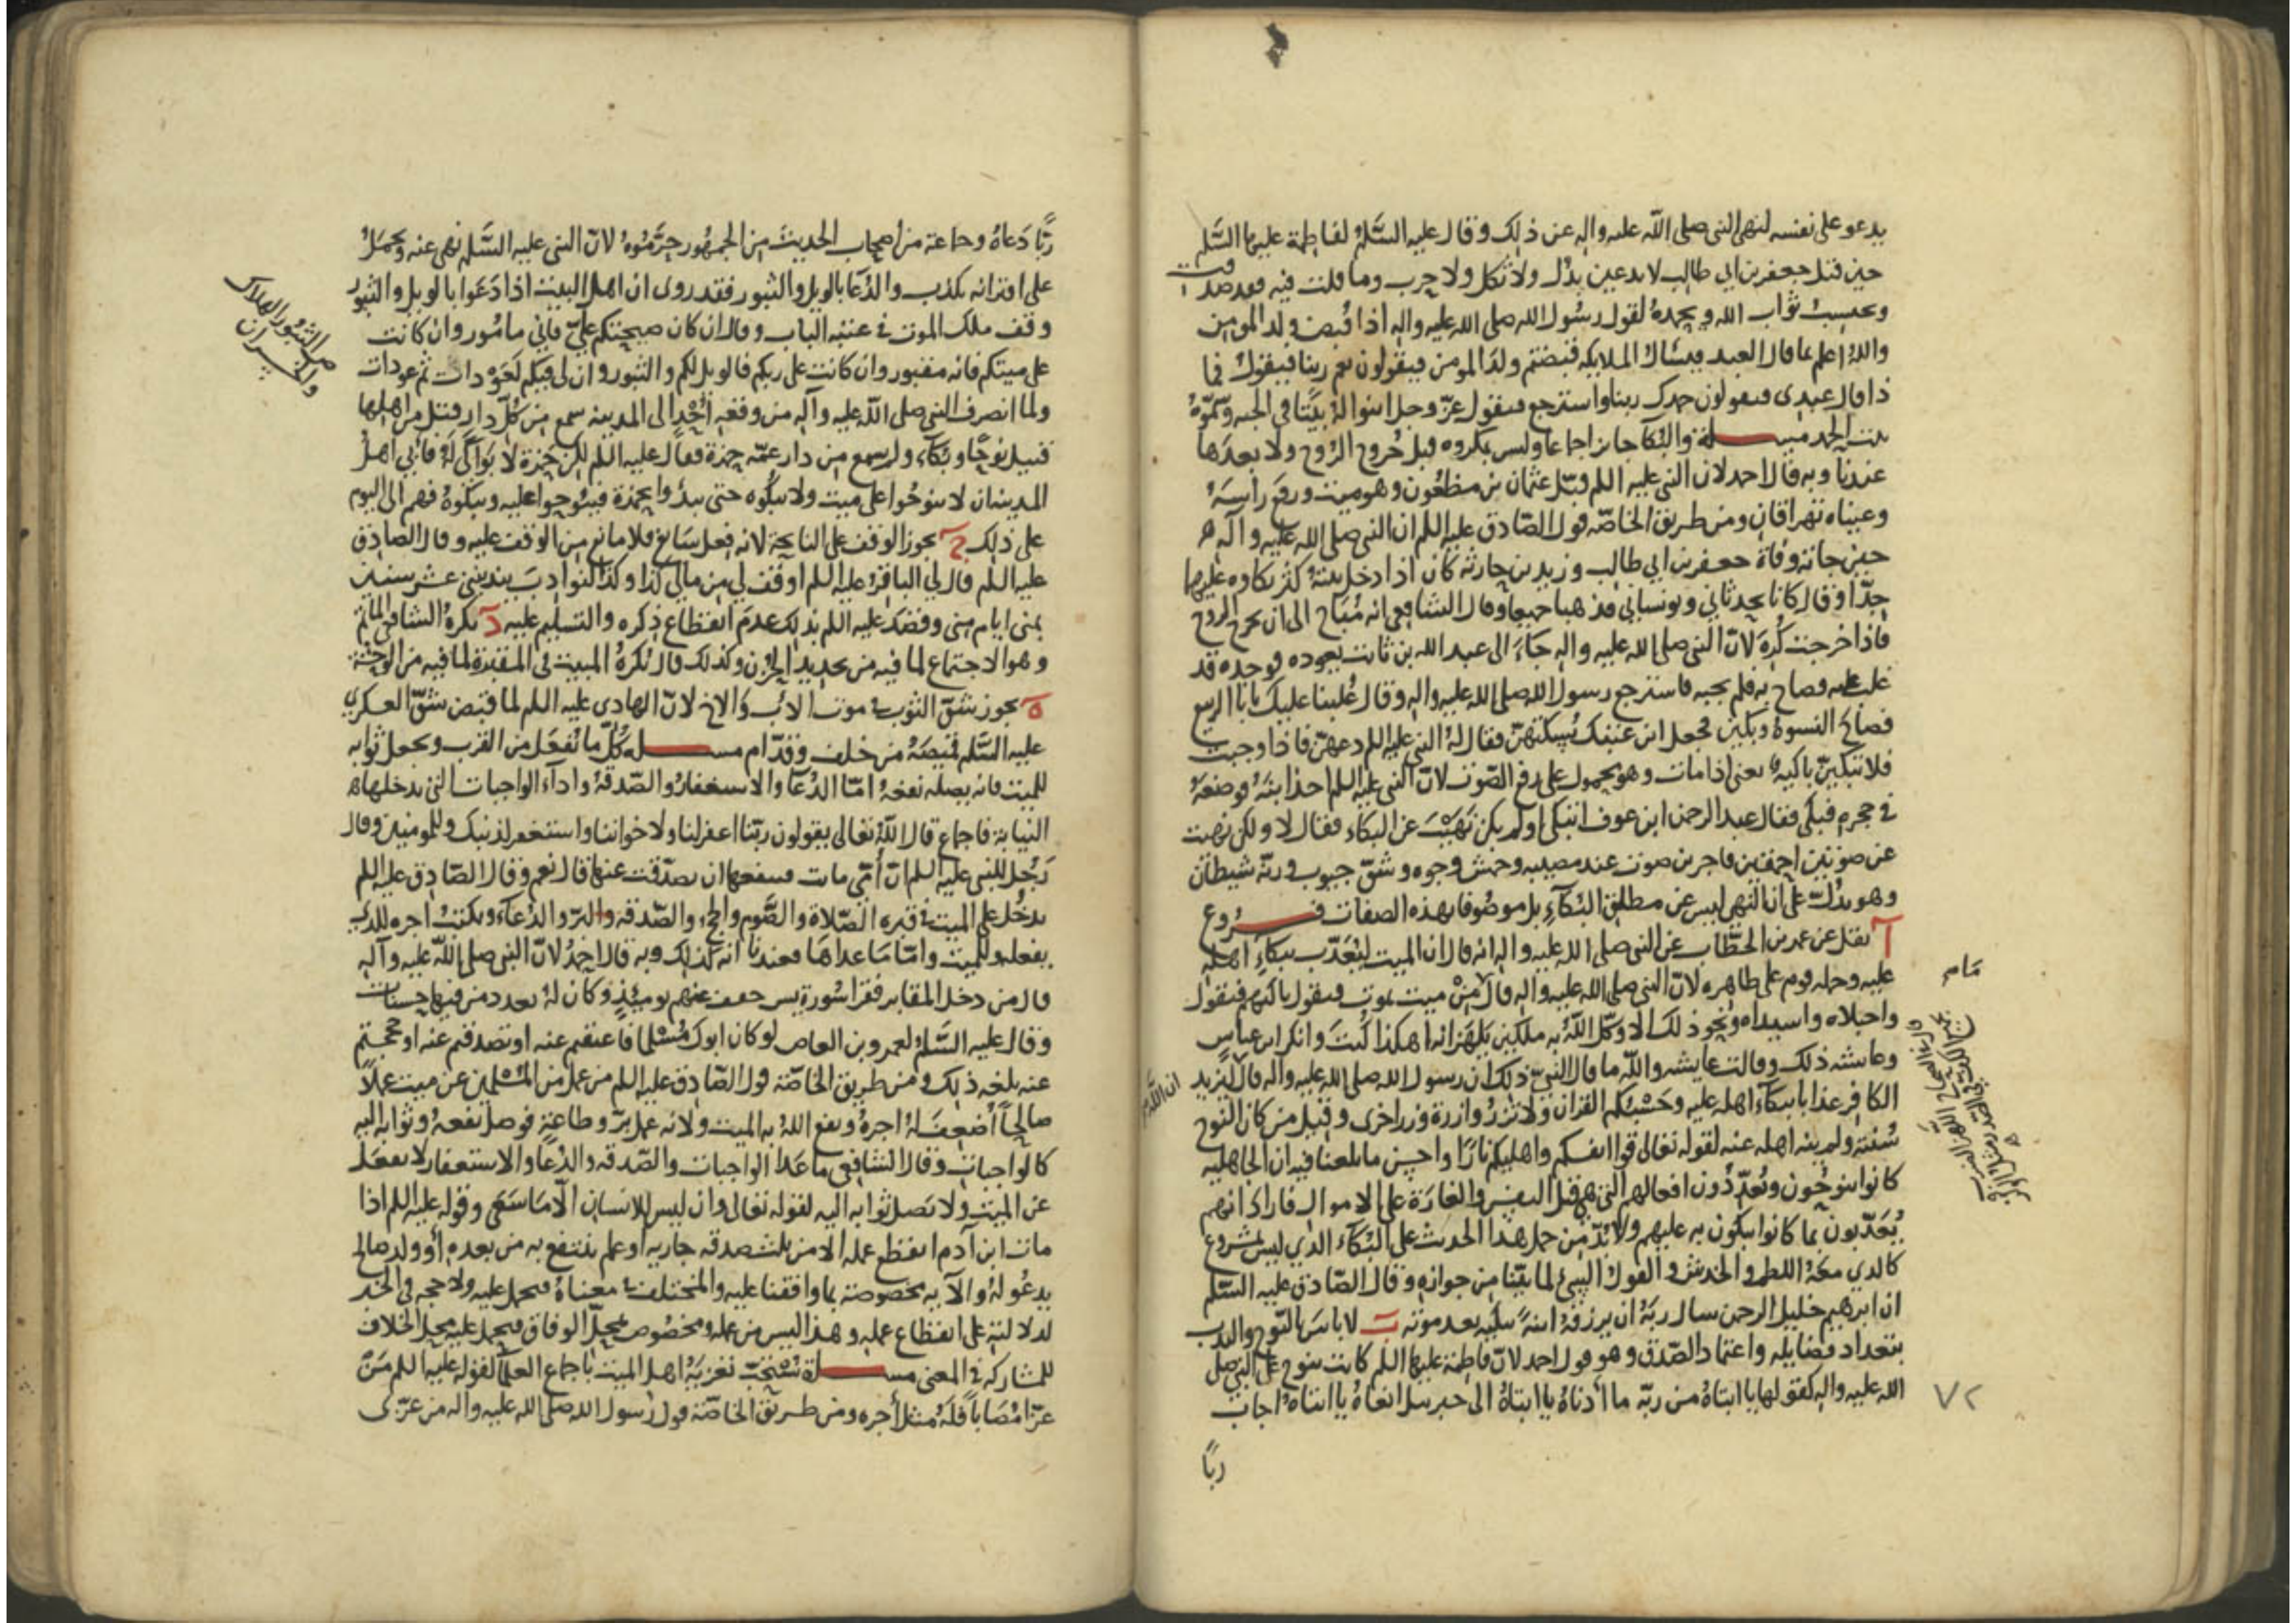 يدعو على نفسه لنهى النبى صلى الله عليه واله عن ذلك وقال عليه السَّلمُ لفاطمة عليها السَّلم
حين قتل جعفر بن ابي طالب لا تدعين بذل ولا ثكل ولا حرب وما قلت فيه فقد صدقت
ويحتسب ثواب الله ويحمدهُ لقول رسُول الله صلى الله عليه واله اذا قُبض ولد المومن
والله اعلم بما قال العبد فيسال الملايكه قبضتم ولد المومن فيقولون نعم ربنا فيقول فما
ذا قال عبدى فيقولون حمدك ربنا واسترجع فيقول عزّ وجل ابنوا لهُ بيتا في الجنه وسمّوهُ
بيت الحمد مسـلة والبكا جايز اجماعا وليس بمكروه قبل خُروج الرّوح ولا بعدها
عندنا وبه قال احمد لان النبى عليه اللم قبّل عثمان بن مظعُون وهو ميت ورفع راسهُ
وعيناه تهراقان ومن طريق الخاصّه قول الصّادق عليه اللم ان النبى صلى الله عليه واله
حين جاته وفاة جعفر بن ابي طالب وزيد بن حارثه كان اذا دخل بيتهُ كثر بكاوه عليهما
جدّا وقال كانا يحدثاني ويونساني فذهبا جميعا وقال الشافعي انه مُباح الى ان يخرج الروح
فاذا خرجت كُره لانّ النبى صلى الله عليه واله جاء الى عبد الله بن ثابت يعوده فوجده قد
غلب عليه فصاح به فلم يجبه فاسترجع رسول الله صلى الله عليه واله وقال غُلبنا عليك يابا الربيع
فصاح النسوةُ وبكين فجعل ابن عتيك يُسكتهنّ فقال لهُ النبى عليه اللم دعهنّ فاذا وجبت
فلا تبكينّ باكيه يعنى اذا مات وهو محمول على رفع الصّوت لانّ النبى عليه اللم اخذ ابنهُ فوضعهُ
في حجره فبكى فقال عبد الرحمن ابن عوف اتبكى اولم يكن نَهَيْتَ عن البكاء فقال لا ولكن نهيت
عن صوتين احمقين فاجرين صوت عند مصيبه وخمش وجوه وشقّ جيوب ورنّة شيطان
وهو يدُلّ على ان النهى ليس عن مطلق البُكآءِ بل موصُوفا بهذه الصفات فـروع
آ نقل عن عمر بن الخطّاب عن النبى صلى الله عليه واله انه قال ان الميت ليُعَذّب ببكاءِ اهله
عليه وحمله قوم على ظاهره لانّ النبى صلى الله عليه واله قال مِنْ ميت يموت فيقول باكيهم فيقول
واجبلاه واسيداه ونحو ذلك الا وكّل اللهُ به ملكين يَلهَزانه اهكذا كُنتَ وانكر ابن عباس
وعايشه ذلك وقالت عايشه والله ما قال النبىّ ذلك ان رسول الله صلى الله عليه واله قال ليزيد
الكافر عذابا ببكآءِ اهله عليه وحَسْبُكم القران ولا تزرُ وازرة وزر اخرى وقيل من كان النوح
سُنتهُ ولم ينه اهله عنه لقوله تعالى قوا انفسكم واهليكم نارًا واحسن ما بلغنا فيه ان الجاهليه
كانوا ينوحُون ويُعدّدُون افعالهم التى هى قتل النفس والغارة على الاموال فاراد انهم
يُعَذّبون بما كانوا يبكون به عليهم ولا بُدّ من حمل هذا الحديث على البُكآء الذي ليس بمشروع
كالذي معَهُ اللطم والخدش والقول السيئ لما بيّنا من جوازه وقال الصّادق عليه السّلم
ان ابرهيم خليل الرحمن سال ربّهُ ان يرزقهُ ابنةً تبكيه بعد موته بَ لا باسَ بالنّوح والندب
بتعداد فضايله واعتماد الصّدق وهو قول احمد لانّ فاطمة عليها اللم كانت تنوح على النبى صلى
الله عليه واله كقولها يا ابتاهُ من ربّه ما ادناهُ يا ابتاهُ الى جبرييل انعاهُ يا ابتاهُ اجاب
ربًا
ان الله
مَا من
٧٢
ربًّا دَعاهُ وجماعة من اصحاب الحديث من الجمهُور حرّمُوهُ لانّ النبى عليه السَّلم نهى عنه ويحملُ
على اقترانه بكذب والدُعا بالويل والثبور فقد روى ان اهل البيت اذا دَعَوا بالويل والثبور
وقف ملك الموت في عتبه الباب وقال ان كان صيحتكم علىّ فاني مامُور وان كانت
على ميتكم فانه مقبور وان كانت على ربكم فالويل لكم والثبور وان لى فيكم لعَوْدات ثم عودات
ولما انصرف النبى صلى الله عليه وآله من وقعه اُحُد الى المدينه سمع من كلّ دار قتل من اهلها
قتيل نوحًا وبكآء ولم يسمع من دار عمّه حمزة فقال عليه اللم لكن حمزة لا بَواكي لهُ فآلى اهلُ
المدينه ان لا ينوحُوا على ميت ولا يبكُوه حتى يبدُوا بحمزة فينُوحوا عليه ويبكُوهُ فهم الى اليوم
على ذلك جَ يجوز الوقف على النايحة لانه فعل سَايغ فلا مانع من الوقف عليه وقال الصادق
عليه اللم قال لى الباقرُ عليه اللم اوقف لى من مالي كذا وكذا لنوادبَ يندبننى عشر سنين
بمنى ايام منى وقصد عليه اللم بذلك عدم انقطاع ذكره والتسليم عليه دَ يكرهُ الشافعى الماتم
وهو الاجتماع لما فيه من تجديد الحُزن وكذلك قال يُكرهُ المبيت فى المقبرة لما فيه من الوحشة
هَ يجوز شقّ الثوب فى موت الاب والاخ لانّ الهادى عليه اللم لما قبض شقّ العسكري
عليه السَّلم قميصَهُ من خلف وقدّام مسـلة كلّ ما يُفعَل من القرب ويجعل ثوابه
للميت فانه يصله نفعهُ امّا الدُعآ والاستغفارُ والصّدقةُ واداءُ الواجبات التى يدخلها
النيابة فاجماع قال اللهُ تعالى يقولون ربّنا اغفر لنا ولاخواننا واستغفر لذنبك وللمومنين وقال
رَجُل للنبى عليه اللم انّ أُمّى مات فينفعها ان تصدّقت عنها قال نعم وقال الصّادق عليه اللم
يدخُل على الميت في قبره الصّلاة والصَّوم والحج والصّدقه والبرّ والدُعآءُ ويكتبُ اجره للذي
يفعله وللميت وامّا ما عداها فعندنا انه كذلك وبه قال احمدُ لانّ النبى صلى الله عليه وآله
قال من دخل المقابر فقرا سُورة يس خفف عنهم يوميئذٍ وكان لهُ بعدد من فيها حسنات
وقال عليه السَّلمُ لعمرو بن العاص لو كان ابوك مُسْلما فاعتقتم عنه او تصدقتم عنه او حججتم
عنه بلغه ذلك ومن طريق الخاصّة قول الصّادق عليه اللم من عمل من المُسْلمين عن ميت عملاً
صالحاً أضعِفَ لهُ اجرهُ ونفع اللهُ به الميت ولانه عمل برّ وطاعة فوصل نفعهُ وثوابه اليه
كالواجبات وقال الشافعى ما عدا الواجبات والصّدقه والدُعآ والاستغفار لا يفعَل
عن الميت ولا يصل ثوابه اليه لقوله تعالى وان ليس للانسان الّا ما سَعَى وقوله عليه اللم اذا
مات ابن آدم انقطع عمله الا من ثلث صدقه جاريه او علم ينتفع به من بعده أو ولد صالح
يدعُو لهُ والآيه مخصوصة بما وافقنا عليه والمختلف فى معناهُ فيحمل عليه ولا حجه فى الخبر
لدلالته على انقطاع عمله وهذا ليس من عمله ومخصُوص بمحلّ الوفاق فيحمل عليه محل الخلاف
للمشاركه فى المعنى مسـلة يُسْتحَبّ تعزيَهُ اهل الميت باجماع العلمآ لقوله عليه اللم مَنْ
عزّا مُصَاباً فلَهُ مثلُ أجره ومن طريق الخاصّة قول رَسول الله صلى الله عليه واله من عزّى
ص الثبُور الهلاك
والخسران